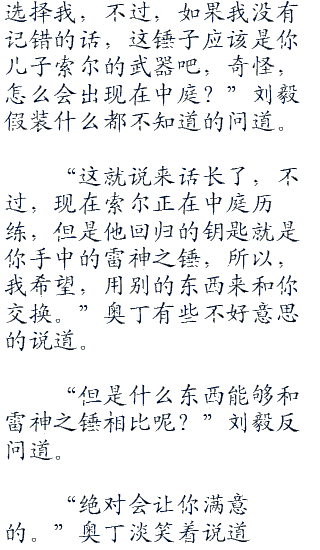 选择我，不过，如果我没有
记错的话，这锤子应该是你
儿子索尔的武器吧，奇怪，
怎么会出现在中庭？”刘毅
假装什么都不知道的问道。
“这就说来话长了，不
过，现在索尔正在中庭历
练，但是他回归的钥匙就是
你手中的雷神之锤，所以，
我希望，用别的东西来和你
交换。”奥丁有些不好意思
的说道。
“但是什么东西能够和
雷神之锤相比呢？”刘毅反
问道。
“绝对会让你满意
的。”奥丁淡笑着说道